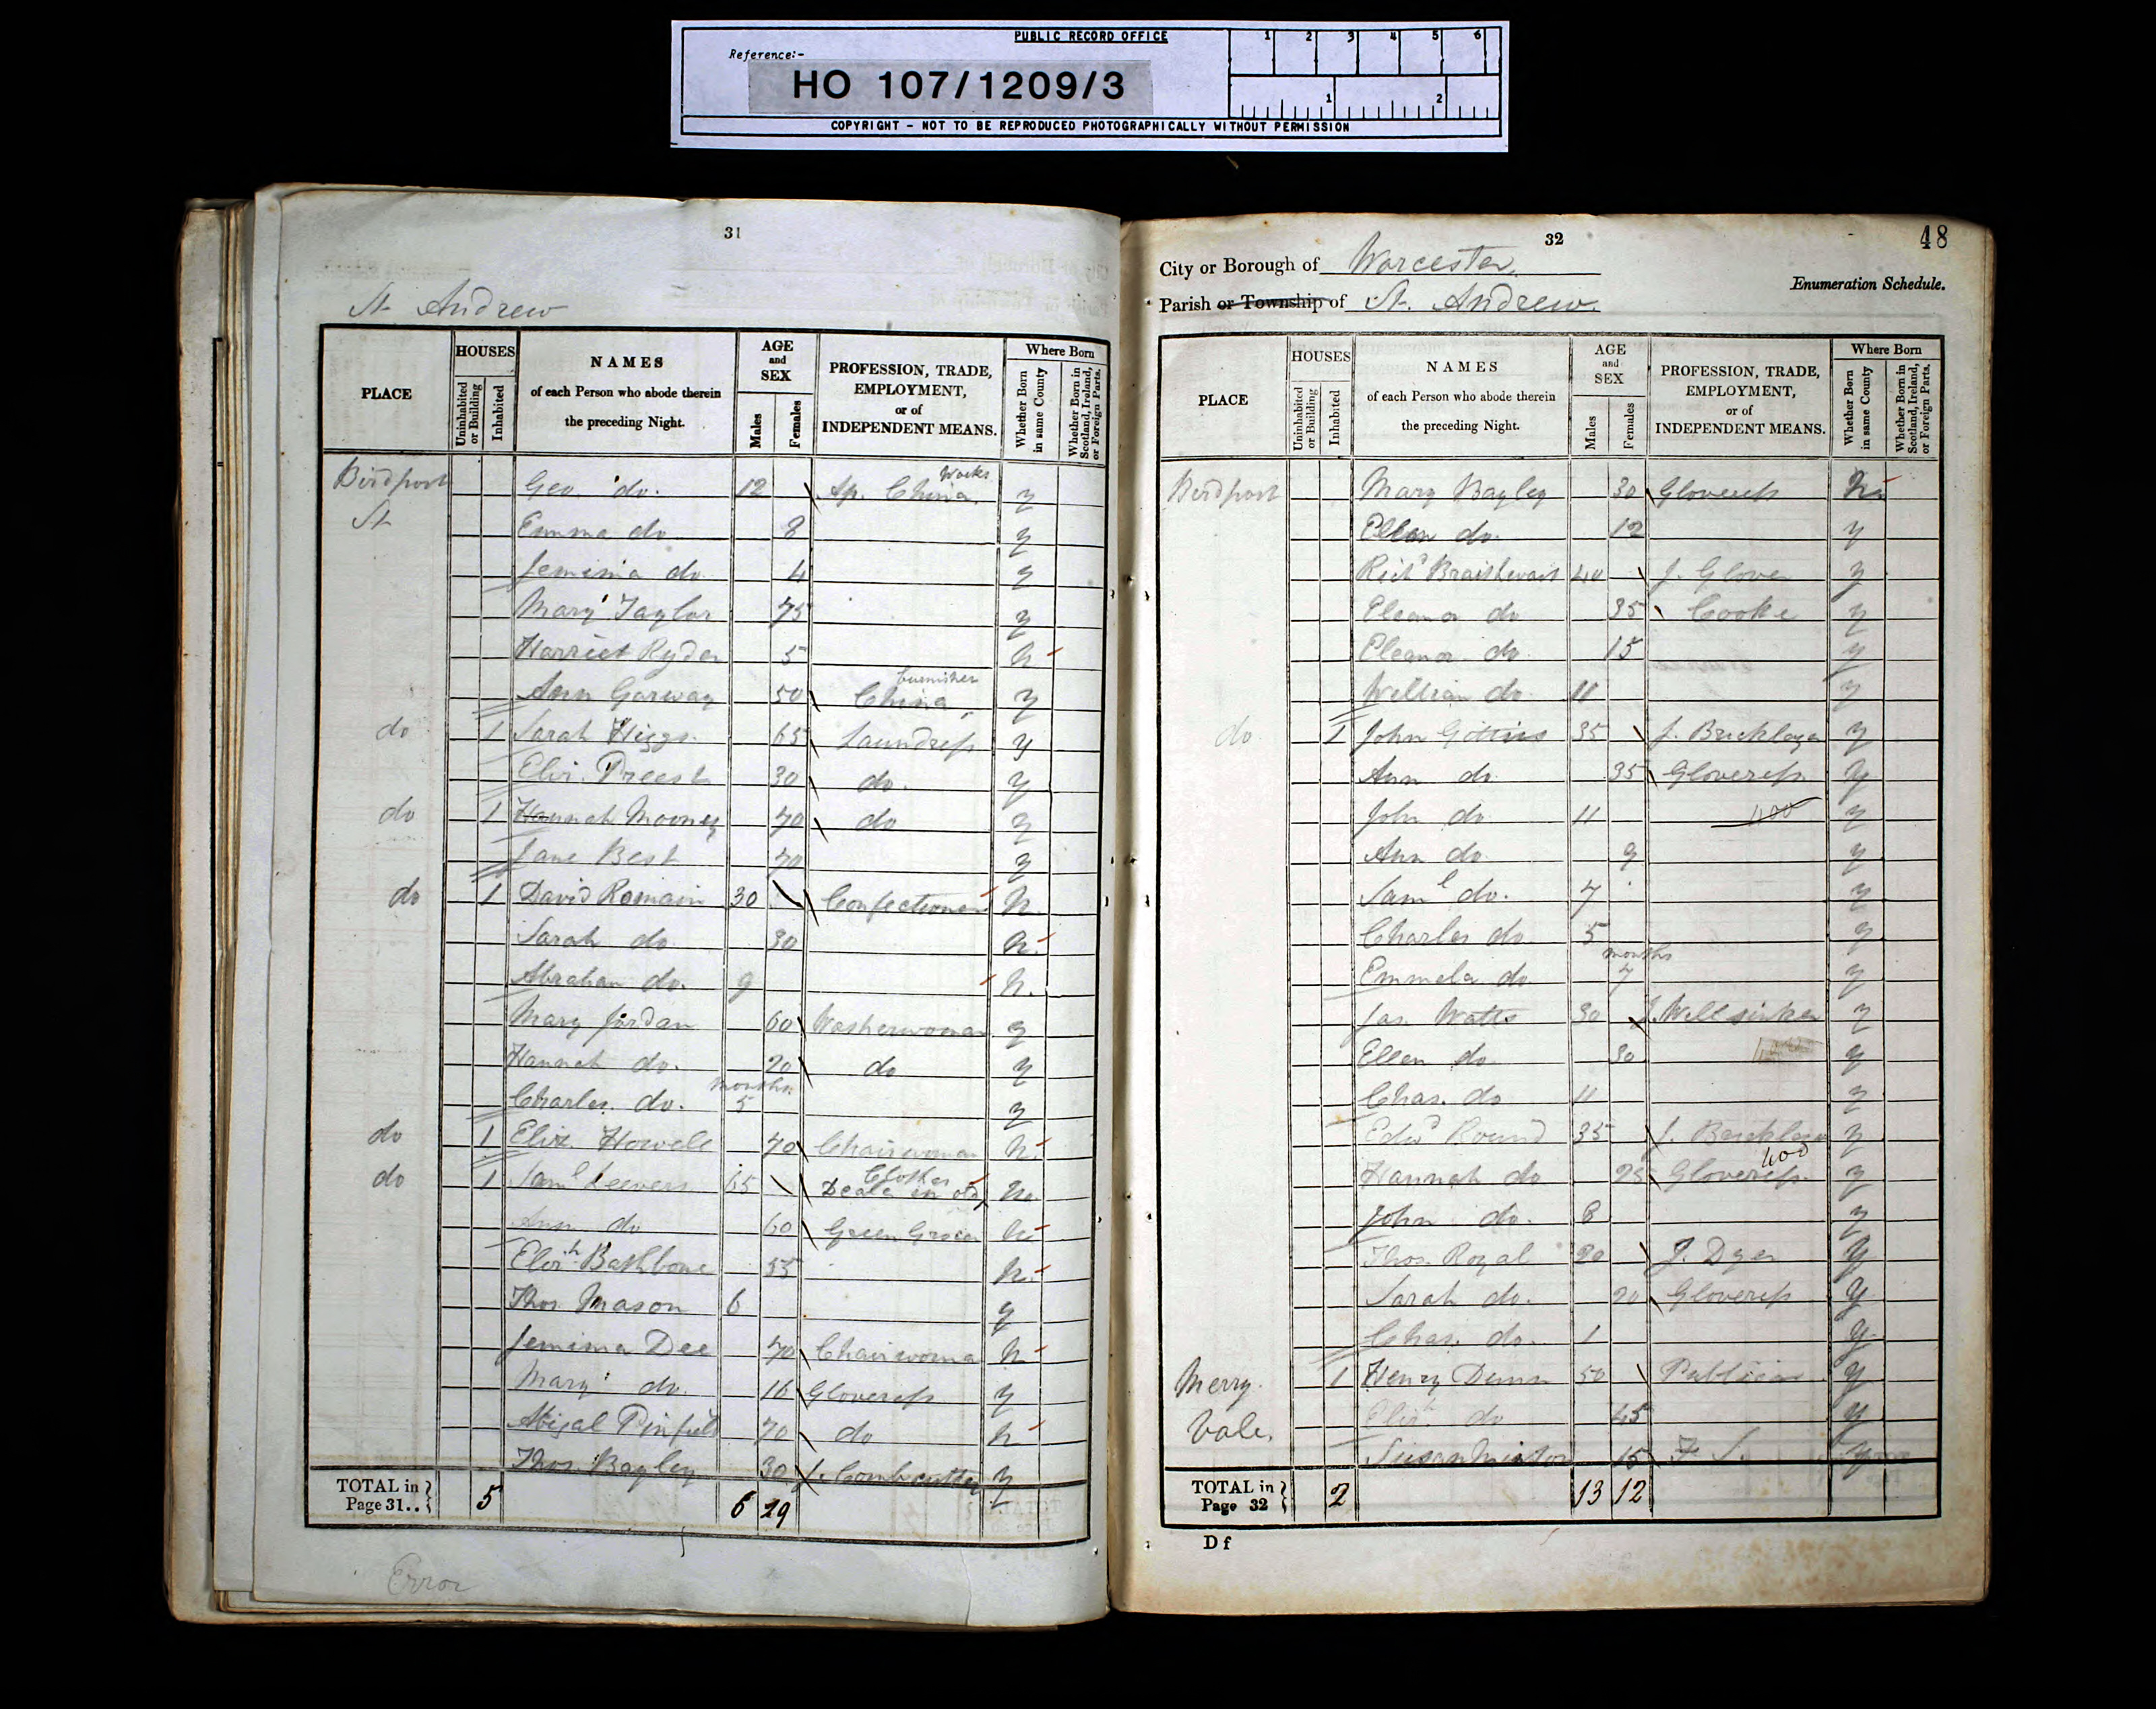 PUBLIC RECORD OFFICE
Reference:-
HO 107/1209/3
1 2 3 4 5 6
1 2
COPYRIGHT - NOT TO BE REPRODUCED PHOTOGRAPHICALLY WITHOUT PERMISSION
31
St. Andrew
PLACE
HOUSES
Uninhabited or Building
Inhabited
NAMES
of each Person who abode therein
the preceding Night.
AGE
and
SEX
Males
Females
PROFESSION, TRADE,
EMPLOYMENT,
or of
INDEPENDENT MEANS.
Where Born
Whether Born in same County
Whether Born in Scotland, Ireland, or Foreign Parts.
Birdport Geo. do. 12 Ap. China Works y
St Emma do 8 y
Jemima do 4 y
Mary Taylor 75 y
Harriet Ryder 5 n
Ann Garway 50 China burnisher y
do 1 Sarah Higgs 65 Laundress y
Eliz. Preest 30 do. y
do 1 Hannah Mooney 70 do y
Jane Best 70 y
do 1 David Romain 30 Confectioner n.
Sarah do 30 n.
Abraham do. 9 n.
Mary Jordan 60 Washerwoman y
Hannah do. 20 do y
Charles do. 5 months y
do 1 Eliz. Howell 70 Chairwoman n.
do 1 Saml Leevers 65 Deala in old Clothes no
Ann do 60 Green Grocer n
Elizh Bathbone 55 n.
Thos. Mason 6 y
Jemima Dee 70 Chairwoma n
Mary do. 16 Gloveress y
Abigal Pinfield 70 do n
Thos. Bayley 30 J. Combcutter y
TOTAL in
Page 31.. 5 6 19
Error
32
48
City or Borough of Worcester.
Enumeration Schedule.
Parish or Township of St. Andrew.
PLACE
HOUSES
Uninhabited or Building
Inhabited
NAMES
of each Person who abode therein
the preceding Night.
AGE
and
SEX
Males
Females
PROFESSION, TRADE,
EMPLOYMENT,
or of
INDEPENDENT MEANS.
Where Born
Whether Born in same County
Whether Born in Scotland, Ireland, or Foreign Parts.
Birdport Mary Bayley 30 Gloveress
Ellen do. 12 y
Richd Braithwait 40 J. Glover y
Eleanor do 35 Cooke y
Eleanor do 15 y
William do 11 y
do. 1 John Gittins 35 J. Bricklayer y
Ann do 35 Gloveress y
John do 11 400 y
Ann do. 9 y
Saml do. 7 y
Charles do 5 y
Emmela do. 7 months y
Jas. Watts 30 J. Wellsinker y
Ellen do. 30 y
Chas. do 11 y
Edwd Round 35 J. Bricklayer y
400
Hannah do 25 Gloveress y
John do. 8 y
Thos. Royal 20 J. Dyer y
Sarah do. 20 Gloveress y
Chas. do. 1 y
Merry 1 Henry Dunn 50 Publican y
Vale. Elizh do 45 y
Susan 15 F. S. y
TOTAL in
Page 32 2 13 12
D f